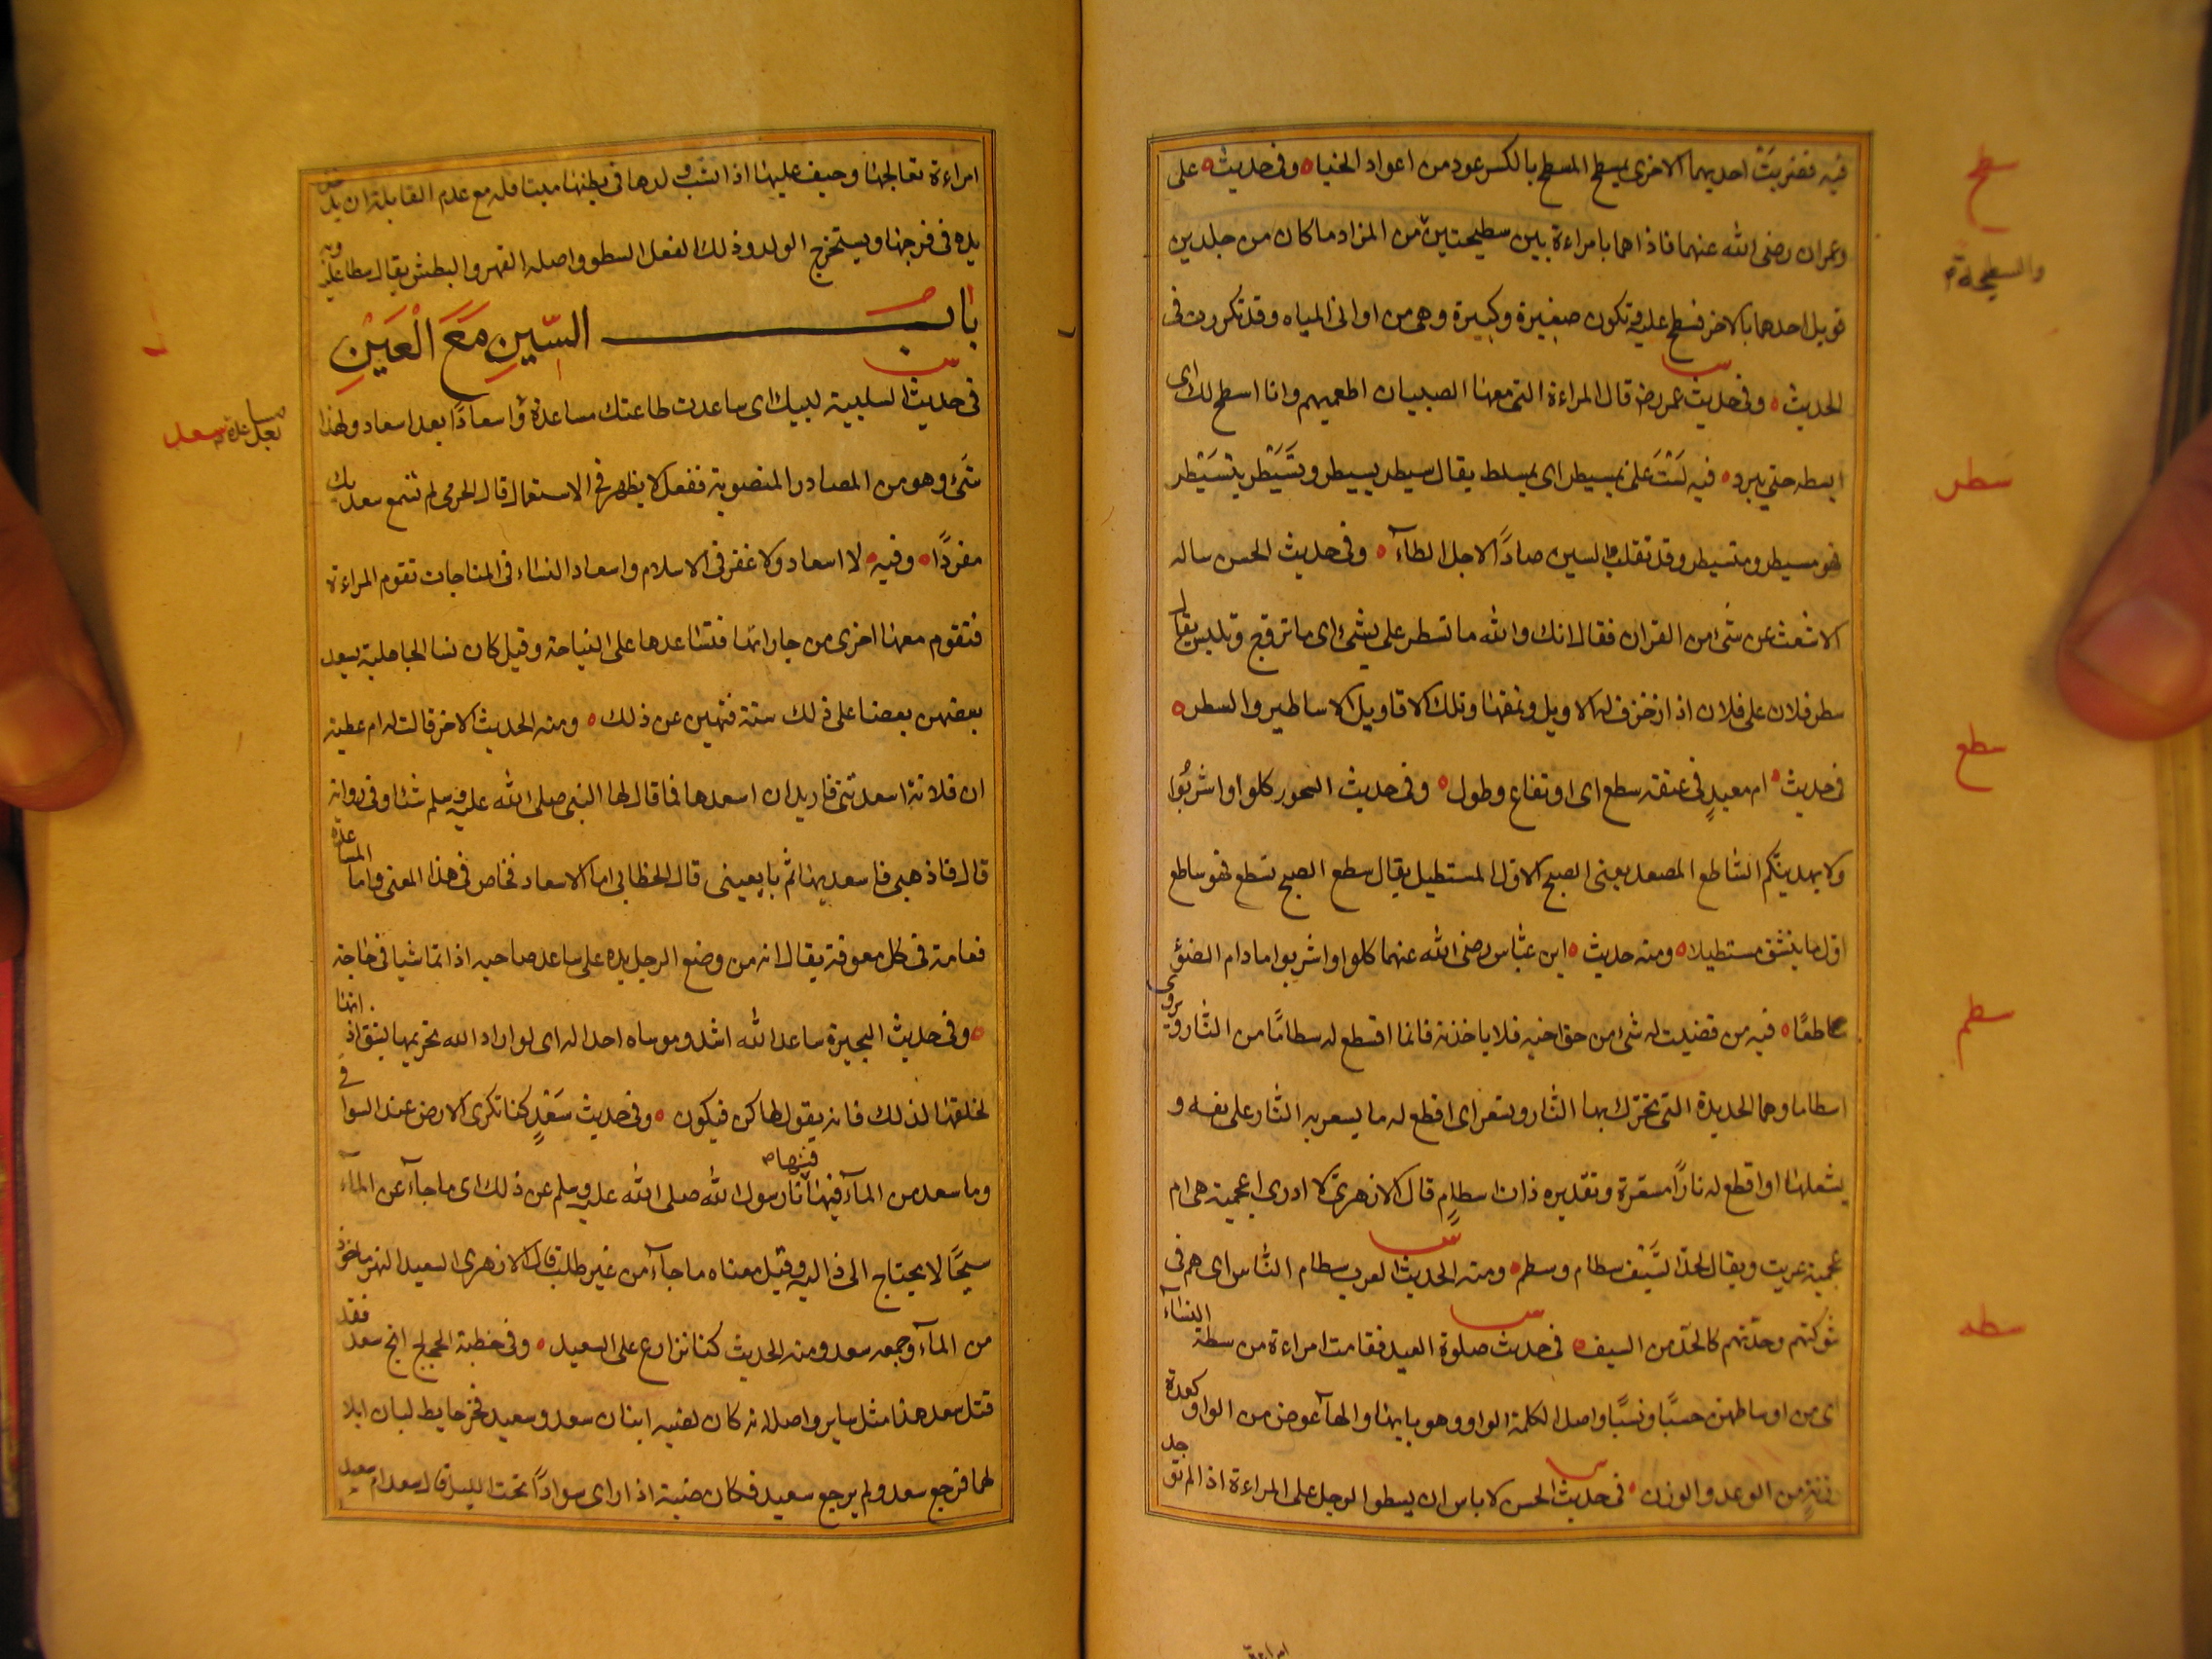 سطح
فيه فضربت احديهما الاخرى بمسطح المسطح بالكسر عود من اعواد الخباء وفى حديث على
وعمران رضى الله عنهما فاذا هما بامراءة بين سطيحتين من المزاد ما كان من جلدين
والسطيحة
قوبل احدهما بالاخر فسطح عليه وتكون صغيرة وكبيرة وهى من اوانى المياه وقد تكررت فى
الحديث وفى حديث عمر رضه قال للمراءة التى معها الصبيان اطعميهم وانا اسطح لك اى
ابسطه حتى يبرد فيه لست على بمسيطر اى بمسلط يقال سيطر يسيطر وتسيطر يتسيطر
سطر
فهو مسيطر ومتسيطر وقد تقلب السين صادًا لاجل الطاء وفى حديث الحسن ساله
الاشعث عن شئ من القران فقال انك والله ما تسطر على بشئ اى ما تروج وتلبس يقال
سطر فلان على فلان اذا زخرف له الاويل ونمقها وتلك الاقاويل الاساطير والسطر
فى حديث ام معبدٍ فى عنقه سطع اى ارتفاع وطول وفى حديث السحور كلوا واشربُوا
سطع
ولا يهدينكم الساطع المصعد يعنى الصبح الاول المستطيل يقال سطع الصبح تسطع فهو ساطع
اول ما ينشق مستطيلا ومنه حديث ابن عباس رضى الله عنهما كلوا واشربوا ما دام الضوؤ
ساطعًا فيه من قضيت له شئ من حق اخيه فلا ياخذنه فانما اقتطع له سطامًا من النار ويروى
سطم
اسطاما وهما الحديدة التى تحرك بها النار وتسعر اى اقطع له ما يسعر به النار على نفسه و
يشعلها او اقطع له نارًا مسعرة وتقديره ذات اسطام قال الازهرى لا ادرى اعجمية هى ام
عجمية عربت ويقال لحد السيف سطام وسطم ومنه الحديث العرب سطام الناس اى هم فى
شوكتهم وحدتهم كالحد من السيف فى حديث صلوة العيد فقامت امراءة من سطة النساء
سطه
اى من اوساطهن حسبًا ونسبًا واصل الكلمة الواو وهو بابها والهآ عوض من الواو كعدة
وزنة من الوعد والوزن فى حديث الحسن لا باس ان يسطو الرجل على المراءة اذا لم توجد
امراءة
امراءة تعالجها وخيف عليها اذا نشب ولدها فى بطنها ميتا فله مع عدم القابلة ان يدخل
يده فى فرجها ويستخرج الولد وذلك الفعل السطو واصله القهر والبطش يقال سطا عليه وبه
باب السّينِ مَعَ الْعَيْنِ
فى حديث التلبية لبيك اى ساعدت طاعتك مساعدة واسعادًا بعد اسعاد ولهذا
سعد
مساعدة بعد
ثنى وهو من المصادر المنصوبة بفعل لا يظهر فى الاستعمال قال الجرمى لم تسمع سعديك
مفردًا وفيه لا اسعاد ولا عقر فى الاسلام واسعاد النساء فى المناحات تقوم المراءة
فتقوم معها اخرى من جاراتها فتساعدها على النياحة وقيل كان نسا الجاهلية يسعد
بعضهن بعضا على ذلك سنة فنهين عن ذلك ومنه الحديث الاخر قالت له ام عطية
ان فلانة اسعدتنى فاريد ان اسعدها فما قال لها النبى صلى الله عليه وسلم شئا وفى رواية
قال فاذهبى فاسعديها ثم بايعينى قال الخطابى اما الاسعاد فخاص فى هذا المعنى واما المساعدة
فعامة فى كل معونة يقال انه من وضع الرجل يده على ساعد صاحبه اذا تماشيا فى حاجة
وفى حديث البحيرة ساعد الله اشد وموساه احد اى لو اراد الله تحريمها بشق اذانها
لخلقها لذلك فانه يقول لها كن فيكون وفى حديث سَعْدٍ كنا نكرى الارض عند السوا فى
وما سعد من المآء فيها فنهانا رسول الله صلى الله عليه وسلم عن ذلك اى ما جاء عن المآء
سيحًا لا يحتاج الى دالية وقيل معناه ما جاء من غير طلب قال الازهرى السعيد النهر ماخوذ
من المآء وجمعه سعد ومنه الحديث كنا نزارع على السعيد وفى خطبة الحجاج انج سعد فقد
قتل سعيد هذا مثل ساير واصله انه كان لضبه ابنان سعد وسعيد فخرجا يطلبان ابلا
لهما فرجع سعد ولم يرجع سعيد فكان ضبة اذا راى سوادًا تحت الليل قال سعد ام سعيد